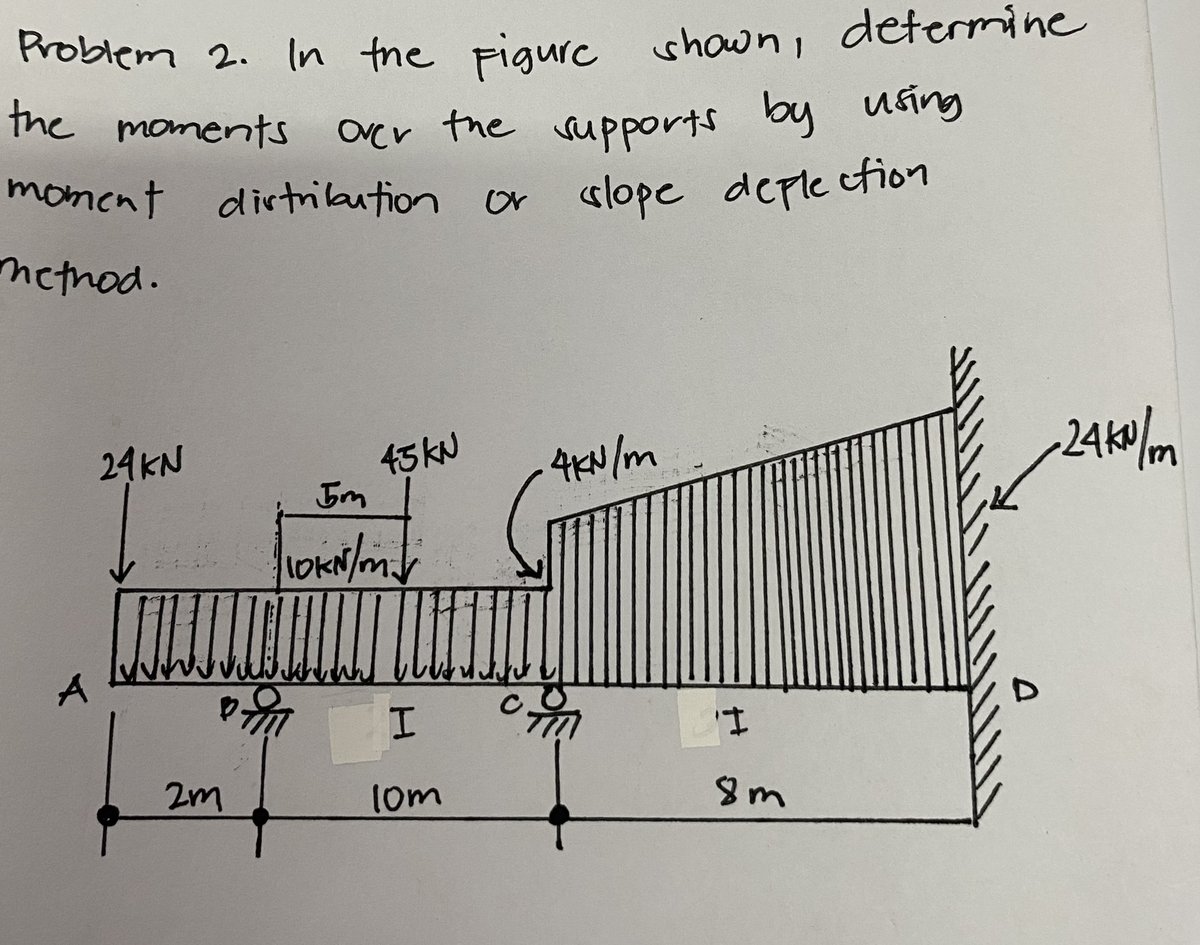 Problem 2. In the Figure shown, determine
the moments over the supports by using
moment distribution or slope deflection
method.
24KN
45KN
4KN/m
24KN/m
5m
10KN/m
A
B
I
C
I
D
2m
10m
8m